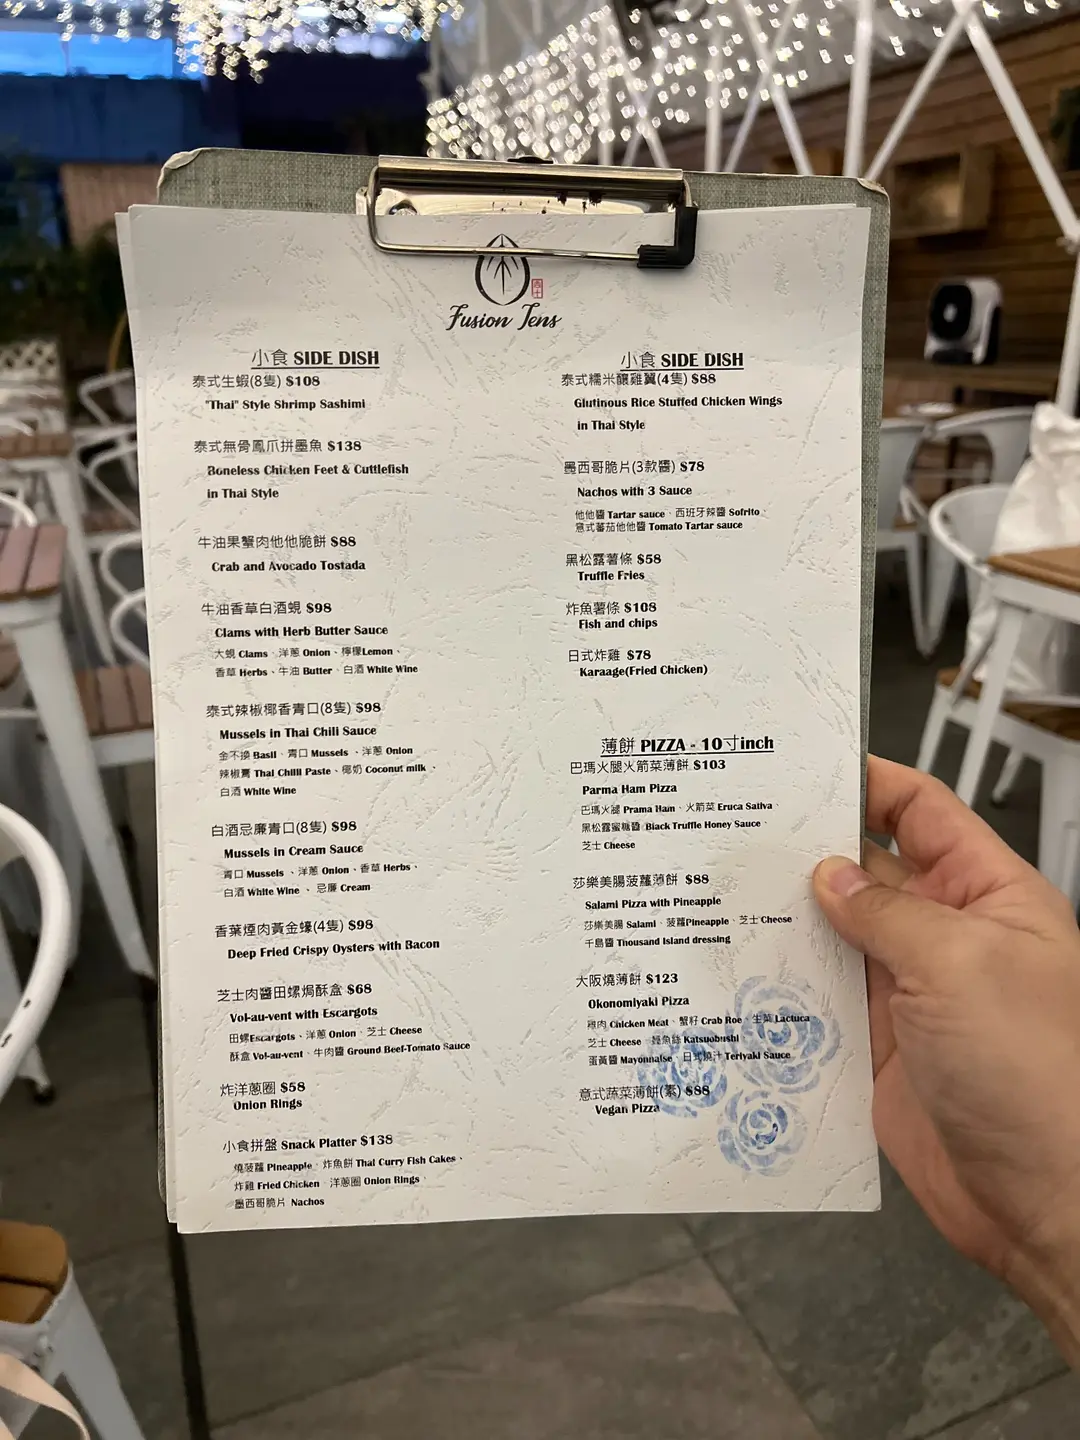 Fusion Tens
小食 SIDE DISH
泰式生蝦(8隻) $108
"Thai" Style Shrimp Sashimi
泰式無骨鳳爪拼墨魚 $138
Boneless Chicken Feet & Cuttlefish
in Thai Style
牛油果蟹肉他他脆餅 $88
Crab and Avocado Tostada
牛油香草白酒蜆 $98
Clams with Herb Butter Sauce
大蜆 Clams、洋蔥 Onion、檸檬Lemon、
香草 Herbs、牛油 Butter、白酒 White Wine
泰式辣椒椰香青口(8隻) $98
Mussels in Thai Chili Sauce
金不換 Basil、青口 Mussels 、洋蔥 Onion
辣椒膏 Thai Chilli Paste、椰奶 Coconut milk 、
白酒 White Wine
白酒忌廉青口(8隻) $98
Mussels in Cream Sauce
青口 Mussels 、洋蔥 Onion、香草 Herbs、
白酒 White Wine 、 忌廉 Cream
香葉煙肉黃金蠔(4隻) $98
Deep Fried Crispy Oysters with Bacon
芝士肉醬田螺焗酥盒 $68
Vol-au-vent with Escargots
田螺Escargots、洋蔥 Onion、芝士 Cheese
酥盒 Vol-au-vent、牛肉醬 Ground Beef-Tomato Sauce
炸洋蔥圈 $58
Onion Rings
小食拼盤 Snack Platter $138
燒菠蘿 Pineapple、炸魚餅 Thai Curry Fish Cakes、
炸雞 Fried Chicken、洋蔥圈 Onion Rings、
墨西哥脆片 Nachos
小食 SIDE DISH
泰式糯米釀雞翼(4隻) $88
Glutinous Rice Stuffed Chicken Wings
in Thai Style
墨西哥脆片(3款醬) $78
Nachos with 3 Sauce
他他醬 Tartar sauce、西班牙辣醬 Sofrito、
意式蕃茄他他醬 Tomato Tartar sauce
黑松露薯條 $58
Truffle Fries
炸魚薯條 $108
Fish and chips
日式炸雞 $78
Karaage(Fried Chicken)
薄餅 PIZZA - 10寸inch
巴瑪火腿火箭菜薄餅 $103
Parma Ham Pizza
巴瑪火腿 Prama Ham、火箭菜 Eruca Sativa、
黑松露蜜糖醬 Black Truffle Honey Sauce、
芝士 Cheese
莎樂美腸菠蘿薄餅 $88
Salami Pizza with Pineapple
莎樂美腸 Salami、菠蘿Pineapple、芝士 Cheese、
千島醬 Thousand Island dressing
大阪燒薄餅 $123
Okonomiyaki Pizza
雞肉 Chicken Meat、蟹籽 Crab Roe、生菜 Lactuca
芝士 Cheese、鰹魚絲 Katsuobushi
蛋黃醬 Mayonnaise、日式燒汁 Teriyaki Sauce
意式蔬菜薄餅(素) $88
Vegan Pizza